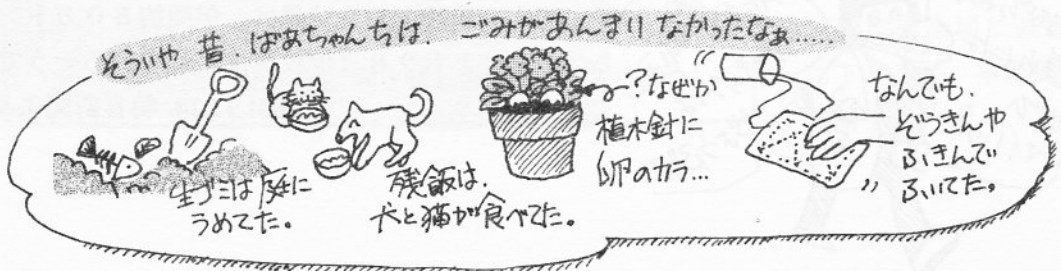 そういや 昔、ばあちゃんちは、ごみがあんまりなかったなぁ……
生ゴミは庭に
うめてた。
残飯は、
犬と猫が食べてた。
?なぜか
植木針に
卵のカラ…
なんでも、
ぞうきんや
ふきんで
ふいてた。